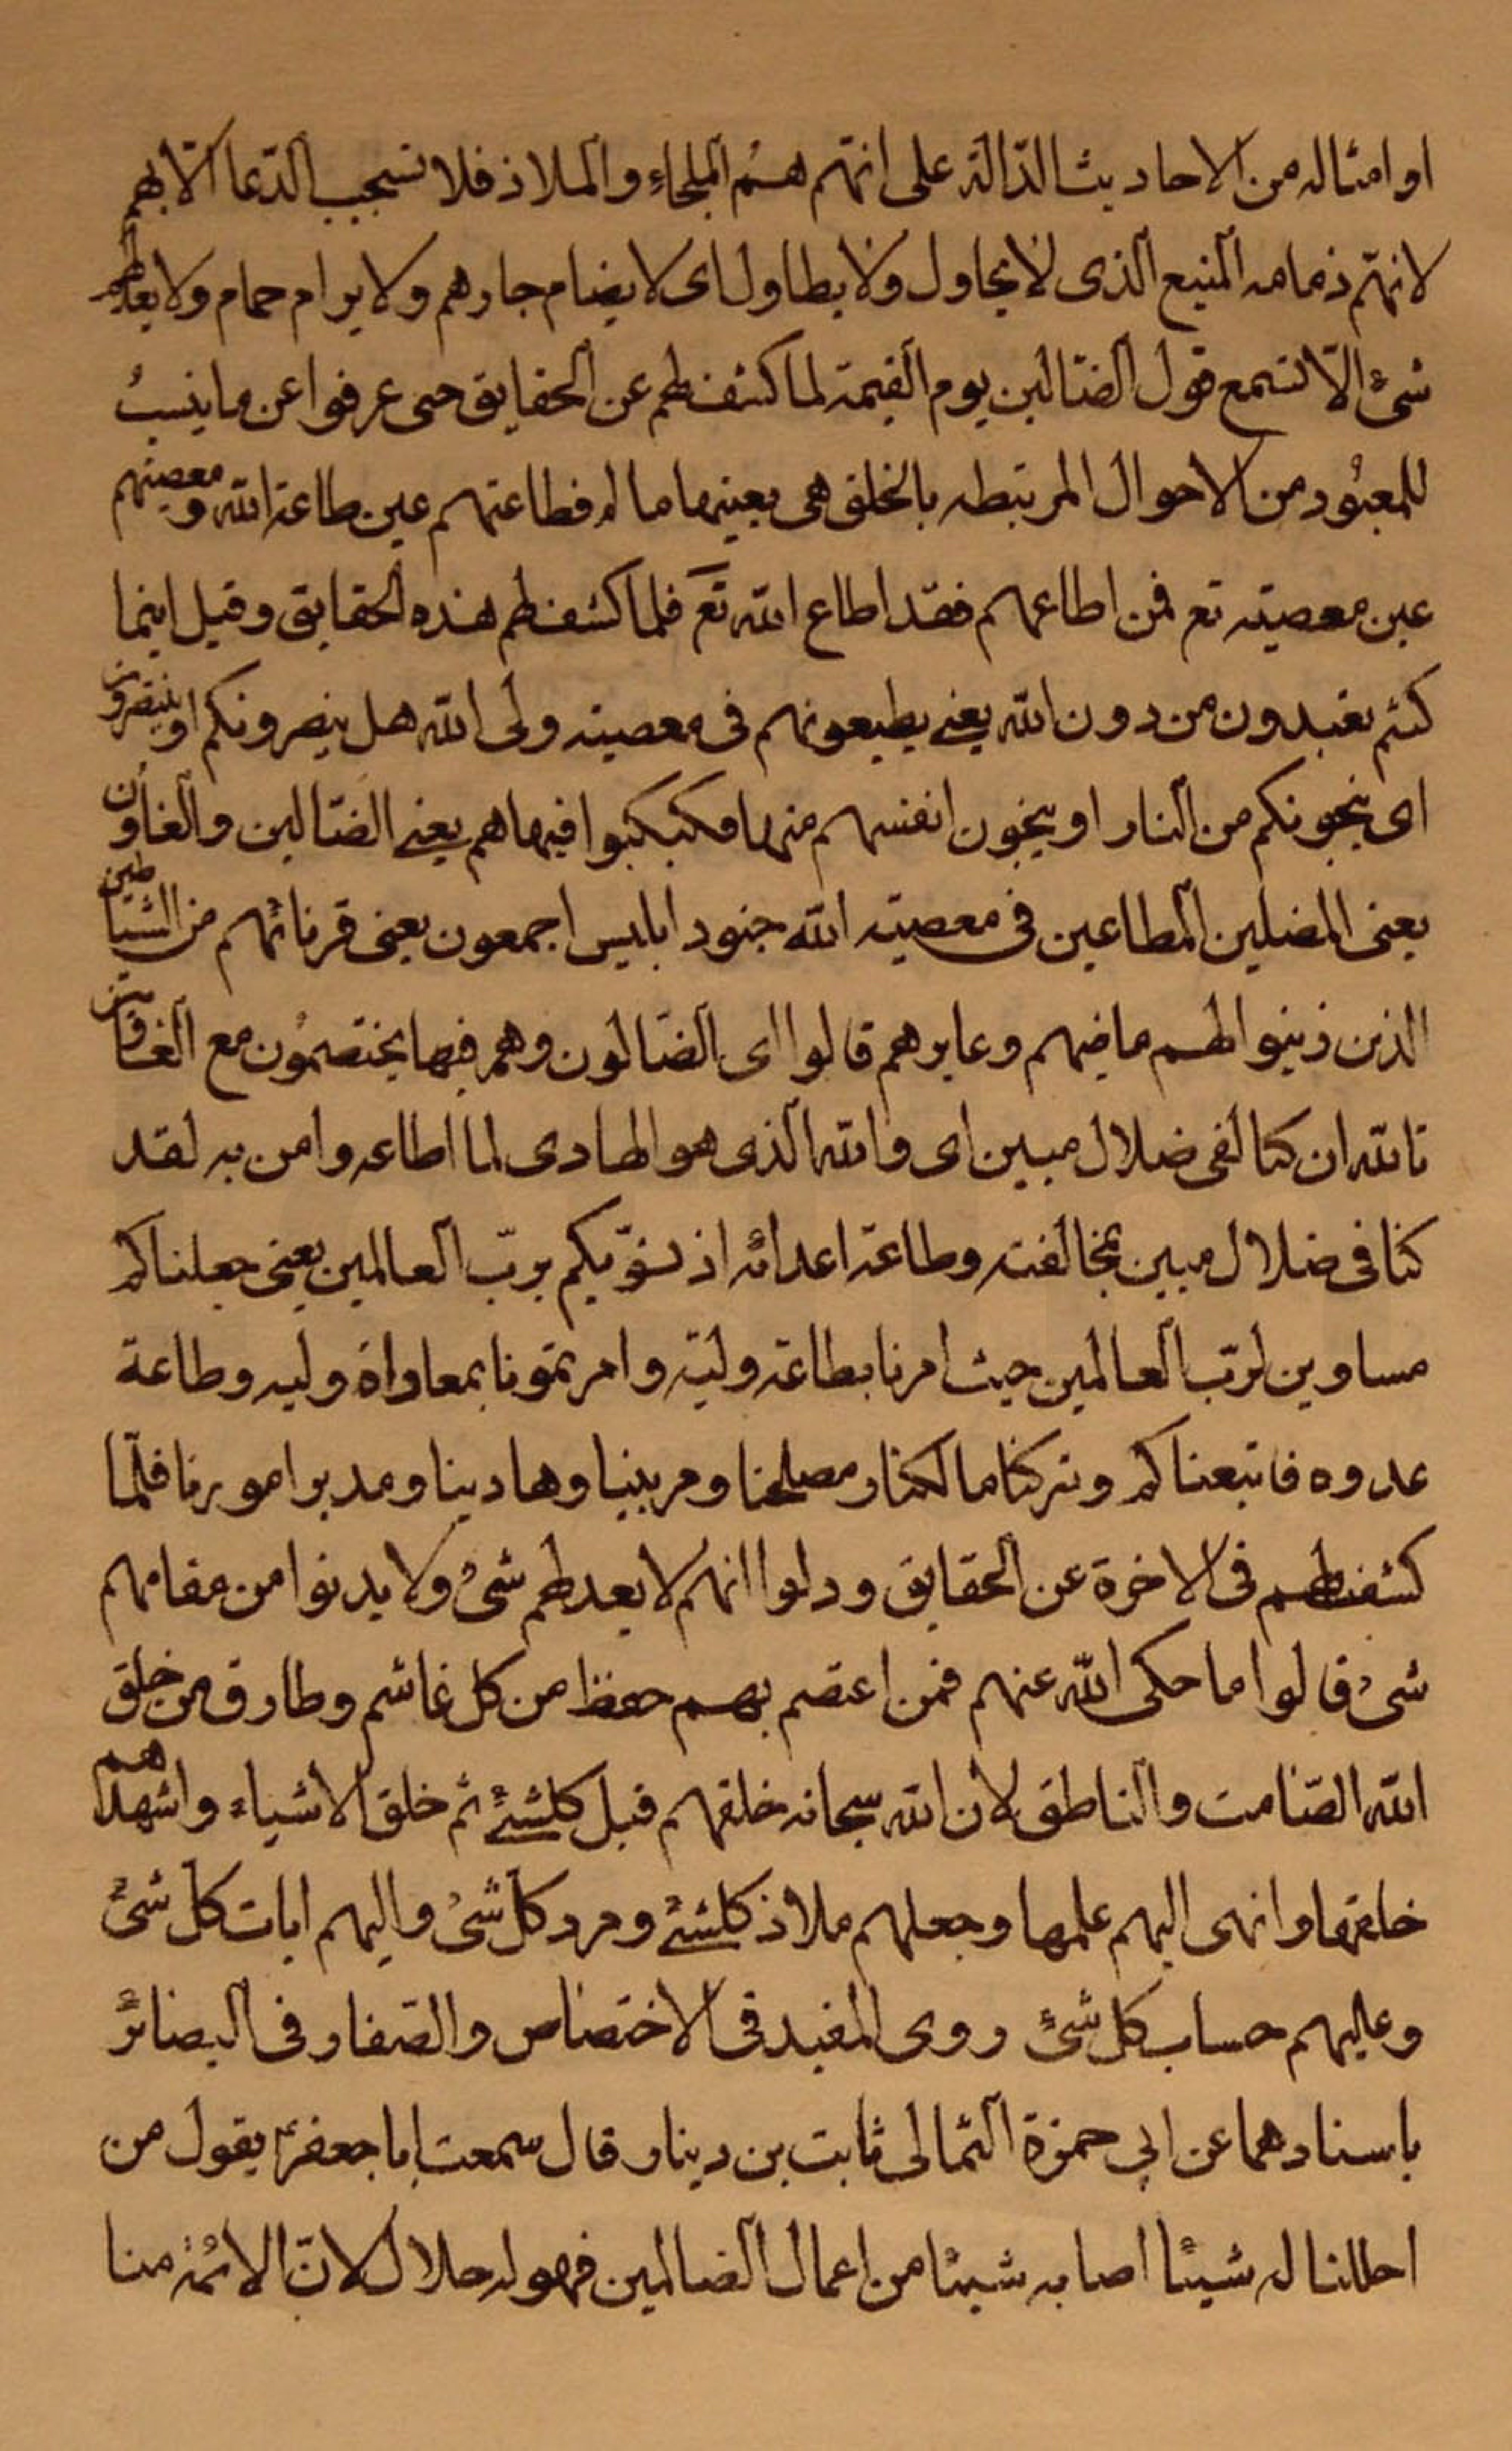 او امثاله من الاحاديث الدّالة على انهّم هُم الملجاء والملاذ فلا تستجيب الدّعا الّا بهم
لانهّم ذمامه المنيع الذى لا يحاول ولا يطاول اى لا يضام جارهم ولا يرام حمام ولا يعدلهم
شئ الّا تسمع قول الضّالين يوم القيمة لما كشف لهم عن الحقايق حتى عرفوا عن ما ينسبُ
للمعبُود من الاحوال المرتبطه بالخلق هى بعينها ما له فطاعتهم عين طاعة الله ومعصيتهم
عين معصيته تع فمن اطاعهم فقد اطاع الله تع فلما كشف لهم هذه الحقايق وقيل اينما
كنتم تعبدون من دون الله يعنى يطيعونهم فى معصيته ولى الله هل ينصرونكم او ينتصرون
اى ينجونكم من النار او ينجون انفسهم منها فكبكبوا فيها هم يعنى الضّالين والغاون
يعنى المضلين المطاعين فى معصيته الله جنود ابليس اجمعون يعنى قرنائهم من الشياطين
الذين زينوا لهم ماضيهم وغابرهم قالوا اى الضّالون وهم فيها يختصمُون مع الغاوين
تالله ان كنا لفى ضلال مبين اى والله الذى هو الهادى لما اطاعه وامن به لقد
كنا فى ضلال مبين بمخالفته وطاعة اعدائه اذ نسوّيكم بربّ العالمين يعنى جعلناكم
مساوين لربّ العالمين حيث امرنا بطاعة وليّه وامرتمونا بمعاواة وليه وطاعة
عدوه فاتبعناكم وتركنا مالكنا ومصلحنا ومربينا وهادينا ومدبر امورنا فلمّا
كشف لهم فى الاخرة عن الحقايق ودلوا انهم لا يعدلهم شئ ولا يدنوا من مقامهم
شئ قالوا ما حكى الله عنهم فمن اعتصم بهم حفظ من كل غاشم وطارق من خلق
الله الصّامت والناطق لان الله سبحانه خلقهم قبل كلشئ ثم خلق الاشياء واشهدهم
خلقها وانهى اليهم علمها وجعلهم ملاذ كلشئ ومرد كل شئ واليهم اياب كل شئ
وعليهم حساب كل شئ روى المفيد فى الاختصاص والصّفار فى البصائر
باسنادهما عن ابى حمزة الثمالى ثابت بن دينار قال سمعت ابا جعفر ع يقول من
احللنا له شيئا اصابه شيئا من اعمال الضالمين فهو له حلال لانّ الائمة منا